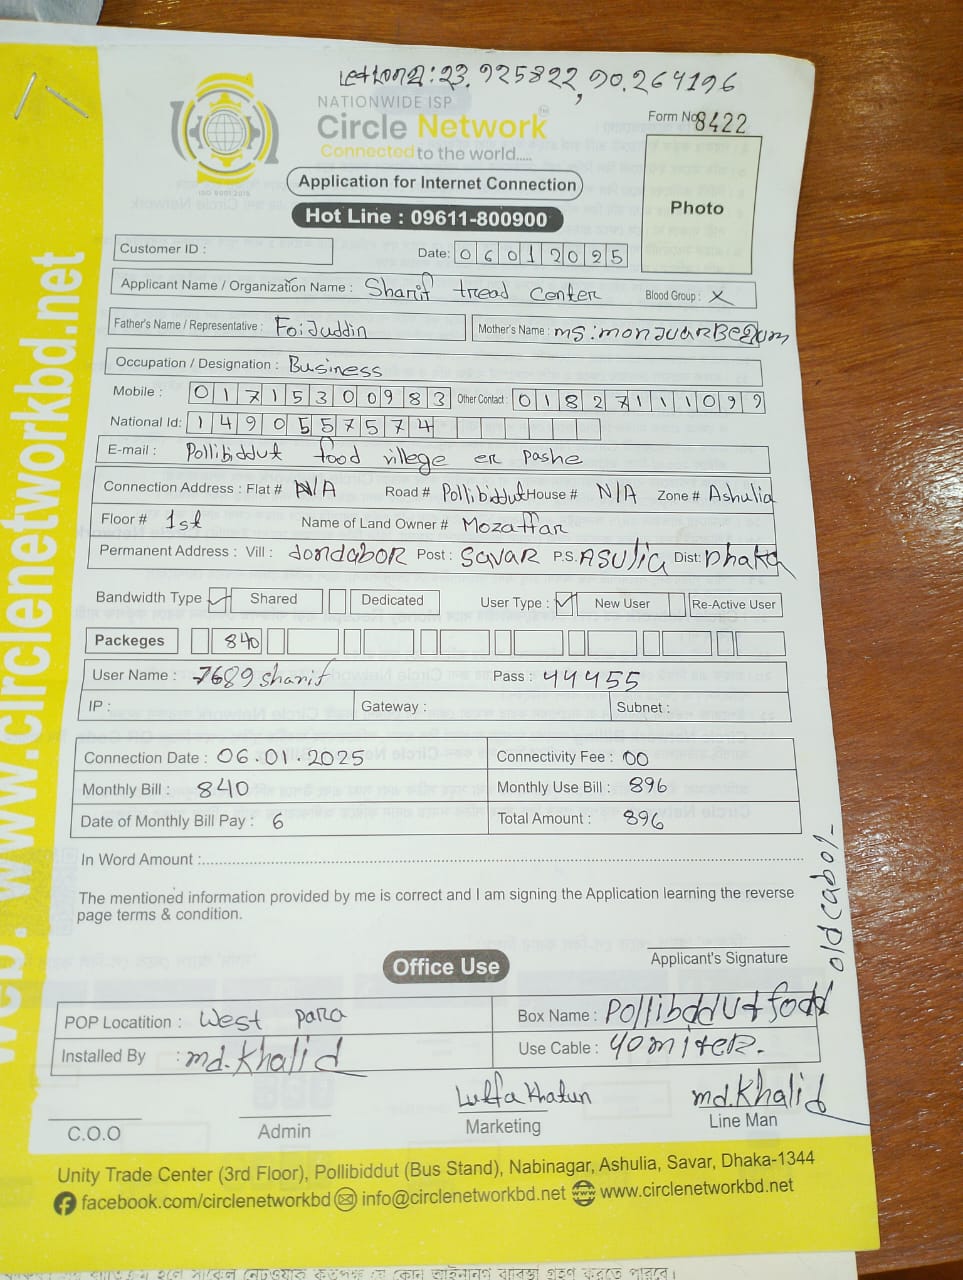 23.925822, 90.264196
NATIONWIDE ISP
Circle Network
Connected to the world.....
ISO 9001:2015
Form No 8422
Photo
Application for Internet Connection
Hot Line : 09611-800900
Customer ID :
Date: 06012025
Applicant Name / Organization Name : Sharif tread center Blood Group : X
Father's Name / Representative : Foijuddin Mother's Name : ms:monjuarBegum
Occupation / Designation : Business
Mobile : 01715300983 Other Contact : 01827111099
National Id: 1490557574
E-mail : Pollibiddut food villege er pashe
Connection Address : Flat # N/A Road # Pollibiddut House # N/A Zone # Ashulia
Floor # 1st Name of Land Owner # Mozaffar
Permanent Address : Vill : dondaboR Post : SavaR P.S. ASulia Dist: Dhaka
Bandwidth Type Shared Dedicated User Type : New User Re-Active User
Packeges 840
User Name : 7689sharif Pass : 44455
IP : Gateway : Subnet :
Connection Date : 06.01.2025 Connectivity Fee : 00
Monthly Bill : 840 Monthly Use Bill : 896
Date of Monthly Bill Pay : 6 Total Amount : 896
In Word Amount :
The mentioned information provided by me is correct and I am signing the Application learning the reverse
page terms & condition.
Applicant's Signature
Office Use
POP Locatition : West para Box Name : Pollibddut fodd
Installed By : md.Khalid Use Cable : 40miteR.
Lutfa Khatun md.Khalid
C.O.O Admin Marketing Line Man
Unity Trade Center (3rd Floor), Pollibiddut (Bus Stand), Nabinagar, Ashulia, Savar, Dhaka-1344
facebook.com/circlenetworkbd info@circlenetworkbd.net www.circlenetworkbd.net
web: www.circlenetworkbd.net
old cabol-